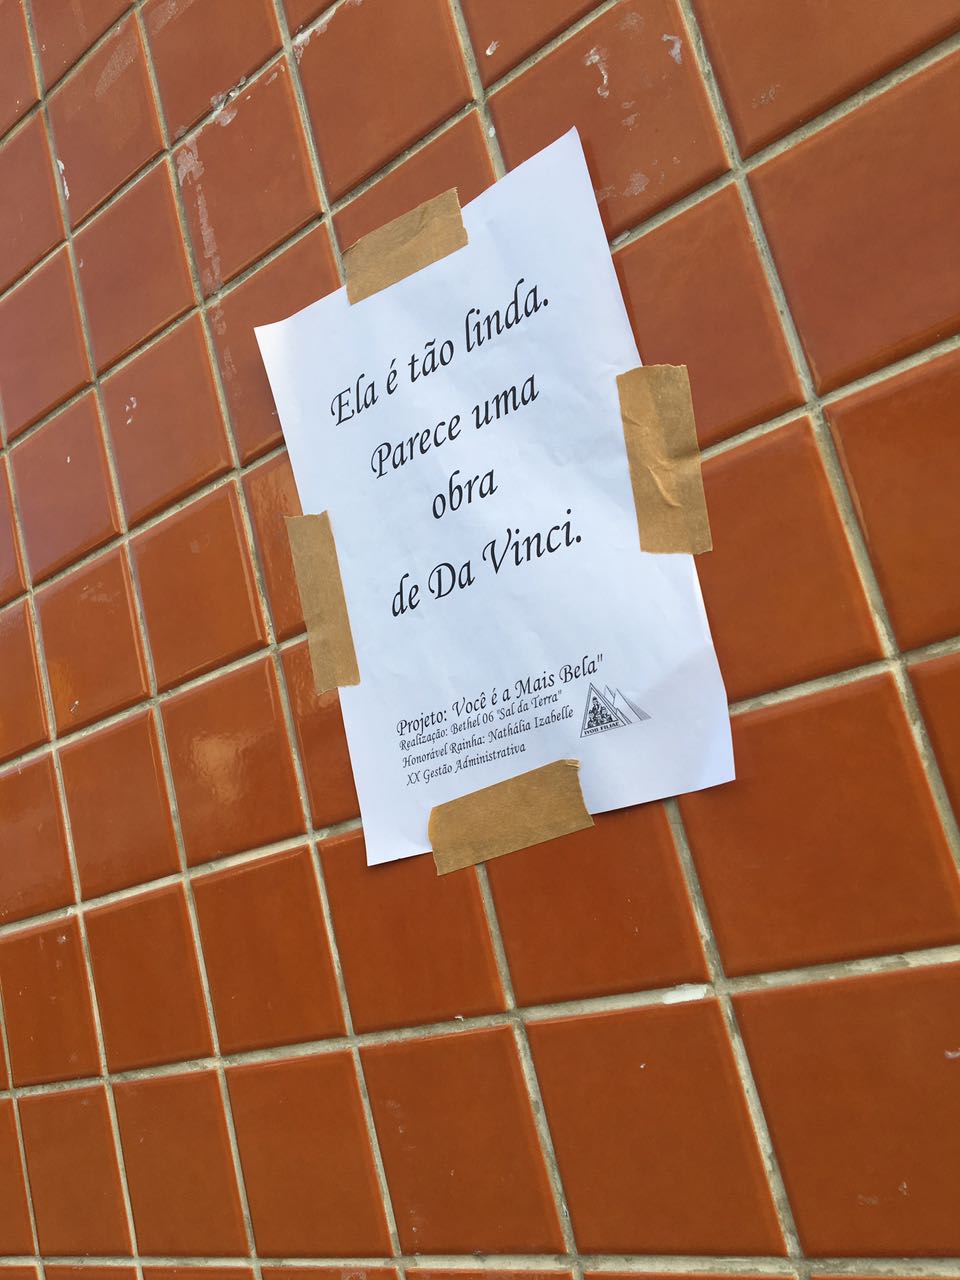 Ela é tão linda.
Parece uma
obra
de Da Vinci.
Projeto: Você é a Mais Bela"
Realização: Bethel 06 "Sal da Terra"
Honorável Rainha: Nathália Izabelle
XX Gestão Administrativa